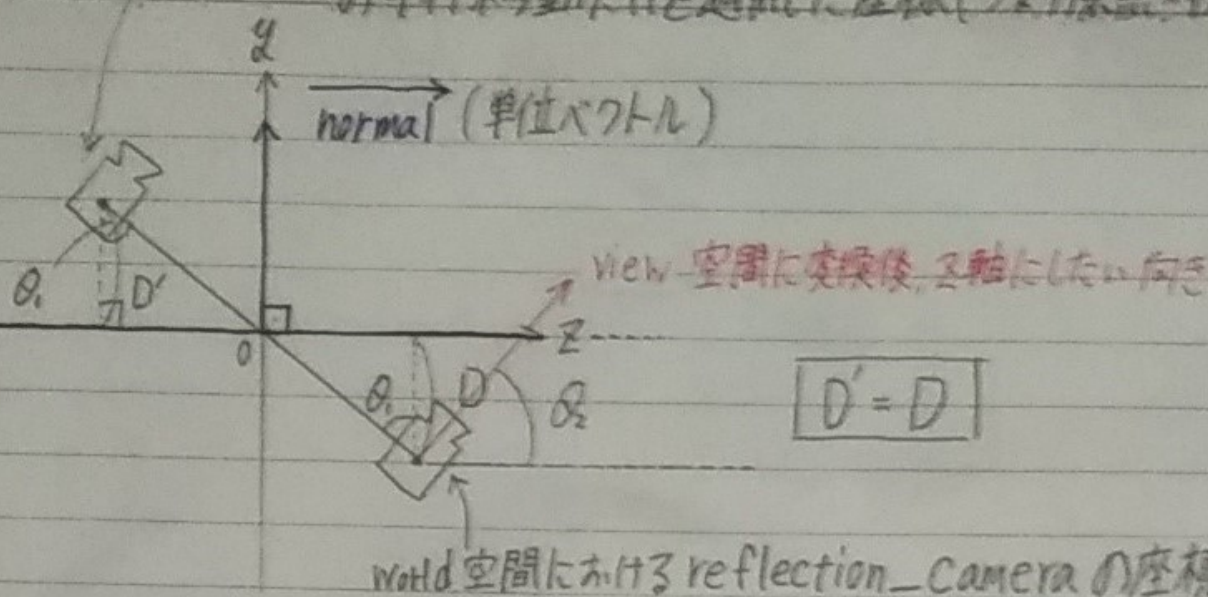 y
normal (単位ベクトル)
view 空間に変換後、Z軸にしたい向き
θ₁
D'
O
Z
θ₁
D
θ₂
D' = D
world空間における reflection_camera の座標